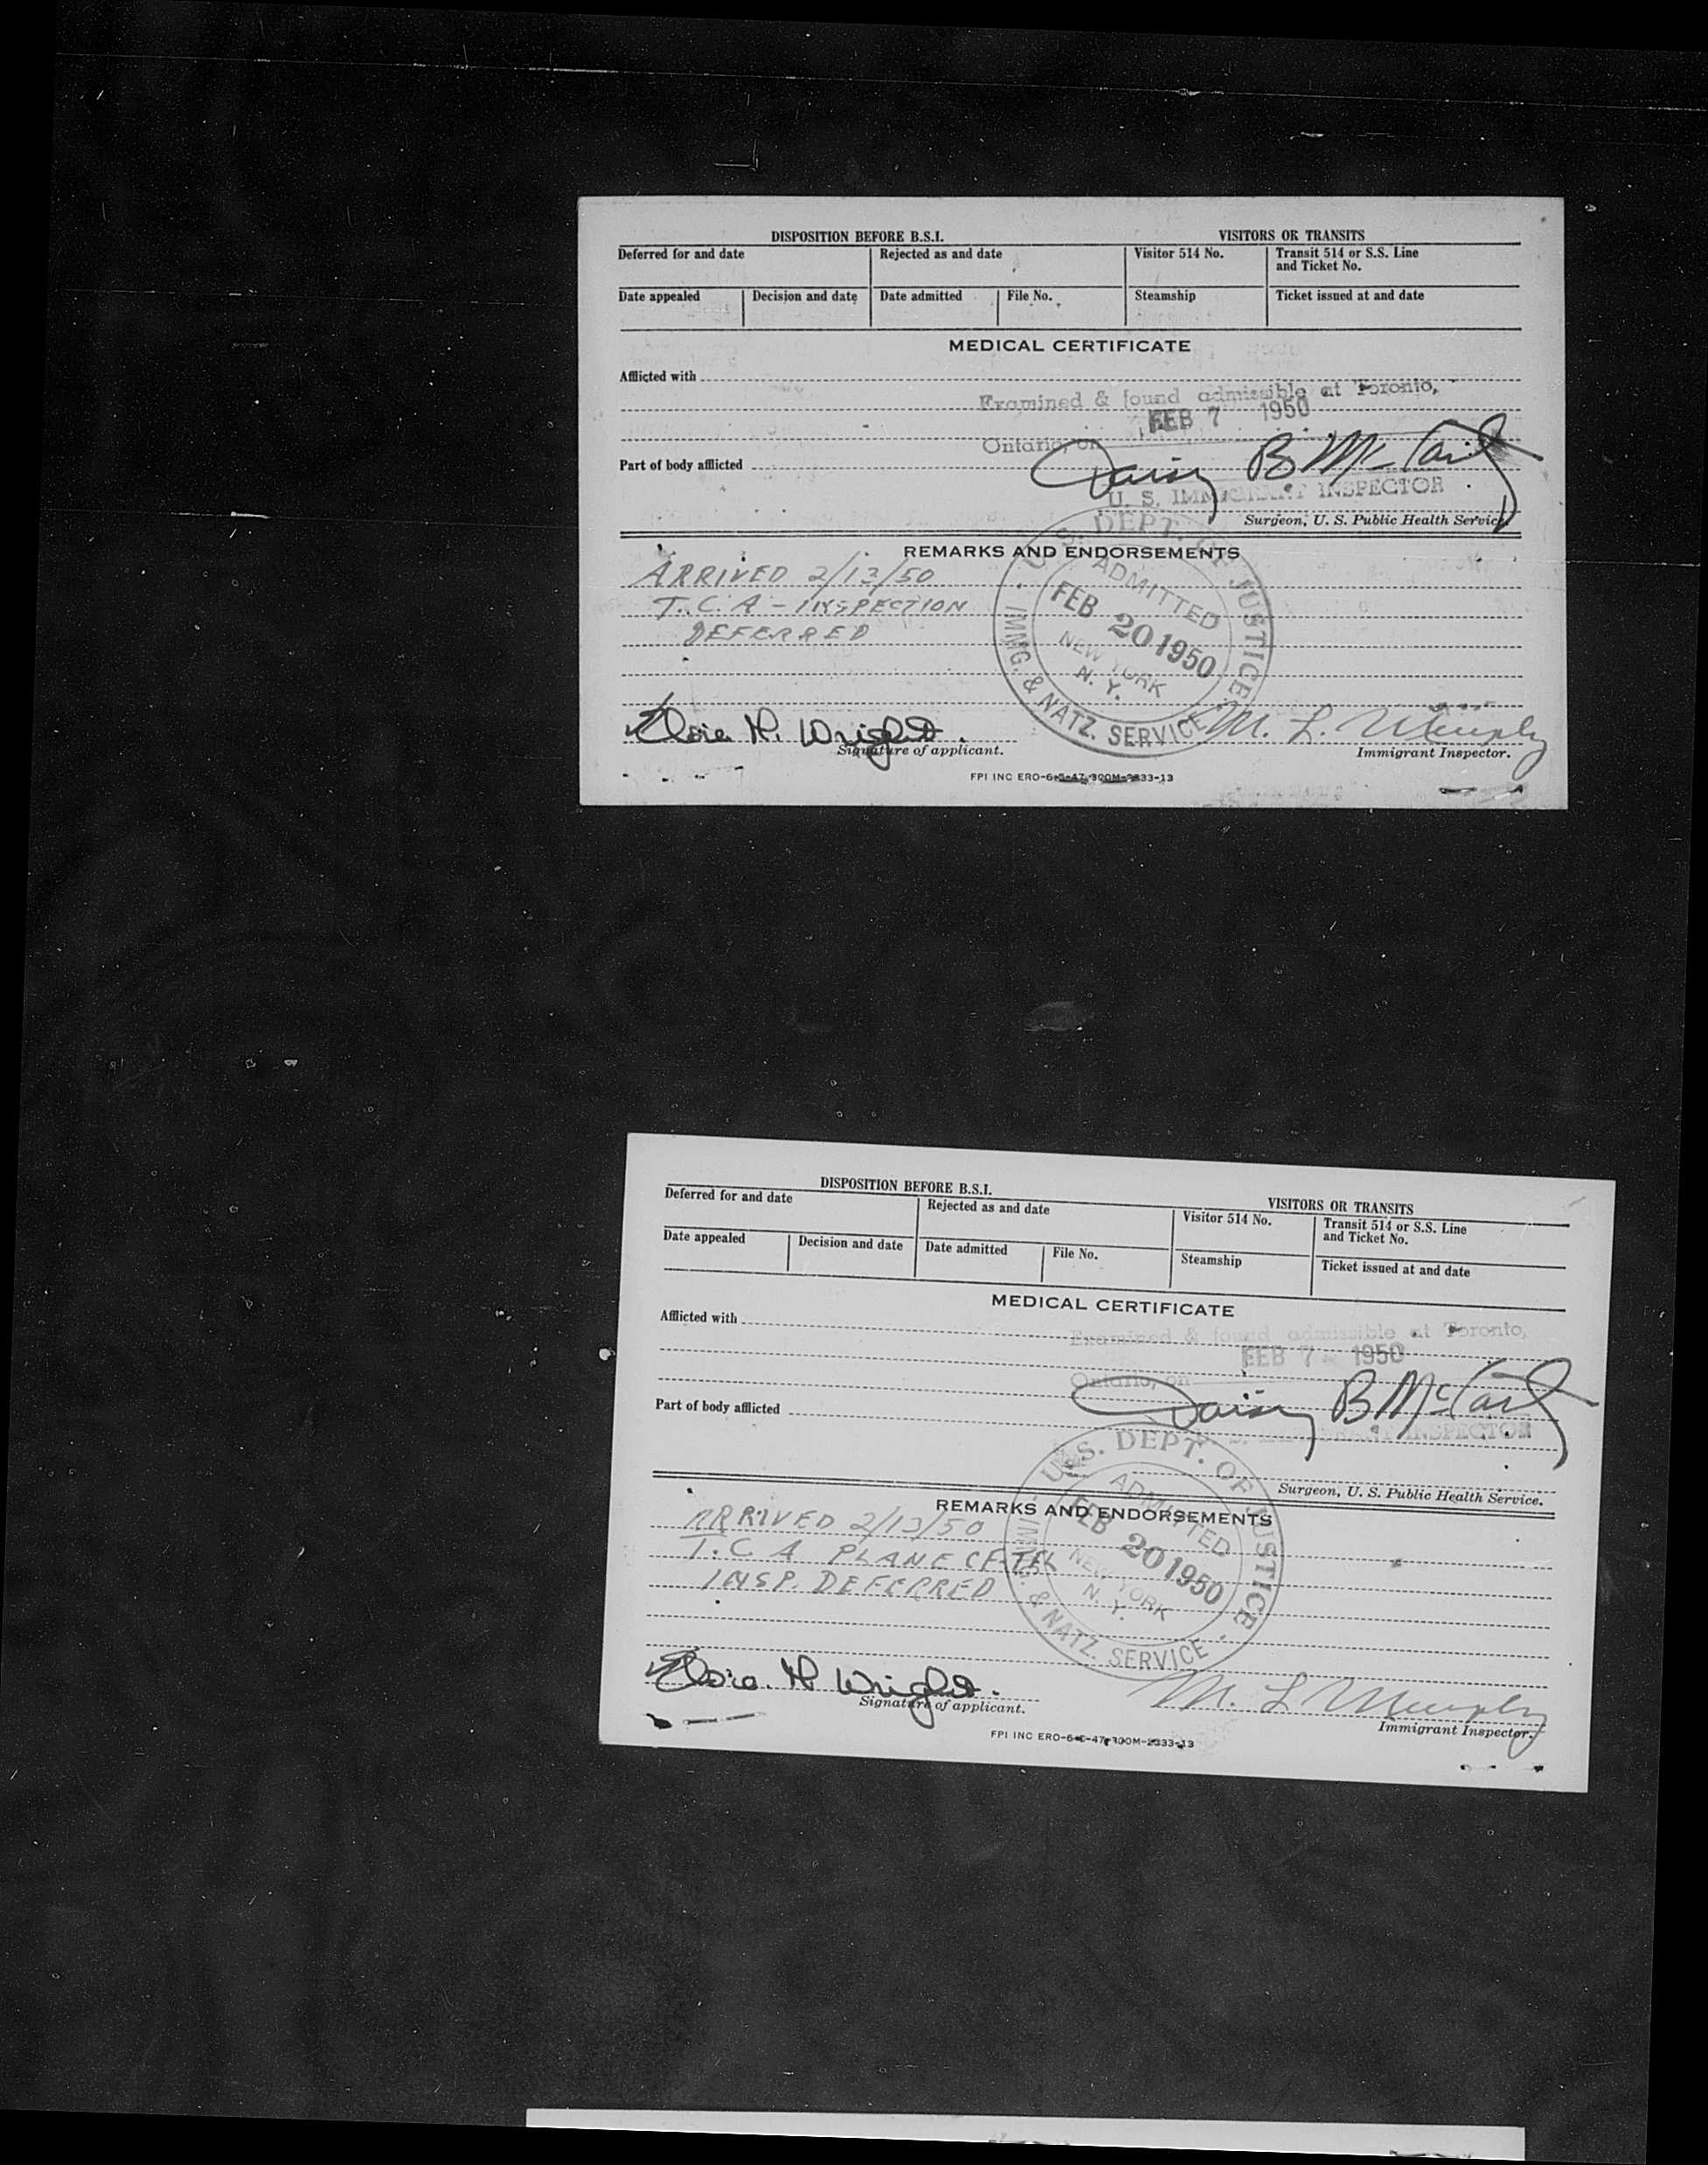 DISPOSITION BEFORE B.S.I. VISITORS OR TRANSITS
Deferred for and date Rejected as and date Visitor 514 No. Transit 514 or S.S. Line
and Ticket No.
Date appealed Decision and date Date admitted File No. Steamship Ticket issued at and date
MEDICAL CERTIFICATE
Afflicted with
Examined & found admissible at Toronto,
FEB 7 1950
Ontario, on
Part of body afflicted
Daisy B. McCarty
U. S. IMMIGRANT INSPECTOR
Surgeon, U. S. Public Health Service.
REMARKS AND ENDORSEMENTS
ARRIVED 2/13/50
T. C. A - INSPECTION
DEFERRED
U. S. DEPT. OF JUSTICE
ADMITTED
FEB 20 1950
NEW YORK
N. Y.
IMMG. & NATZ. SERVICE
N. Wright M. L. Murphy
Signature of applicant. Immigrant Inspector.
FPI INC ERO-6-5-47-300M-2333-13
DISPOSITION BEFORE B.S.I. VISITORS OR TRANSITS
Deferred for and date Rejected as and date Visitor 514 No. Transit 514 or S.S. Line
and Ticket No.
Date appealed Decision and date Date admitted File No. Steamship Ticket issued at and date
MEDICAL CERTIFICATE
Afflicted with
Examined & found admissible at Toronto,
FEB 7 1950
Ontario, on
Part of body afflicted
Daisy B. McCarty
IMMIGRANT INSPECTOR
Surgeon, U. S. Public Health Service.
REMARKS AND ENDORSEMENTS
ARRIVED 2/13/50
T. C. A PLANE CF-TEL
INSP. DEFERRED
U. S. DEPT. OF JUSTICE
ADMITTED
FEB 20 1950
NEW YORK
N. Y.
IMMG. & NATZ. SERVICE
N Wright. M. L Murphy
Signature of applicant. Immigrant Inspector.
FPI INC ERO-6-5-47-300M-2333-13